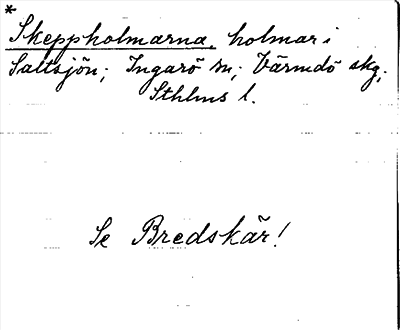 *
Skeppholmarna, holmar i
Saltsjön; Ingarö sn; Värmdö skg,
Sthlms l.
Se Bredskär!